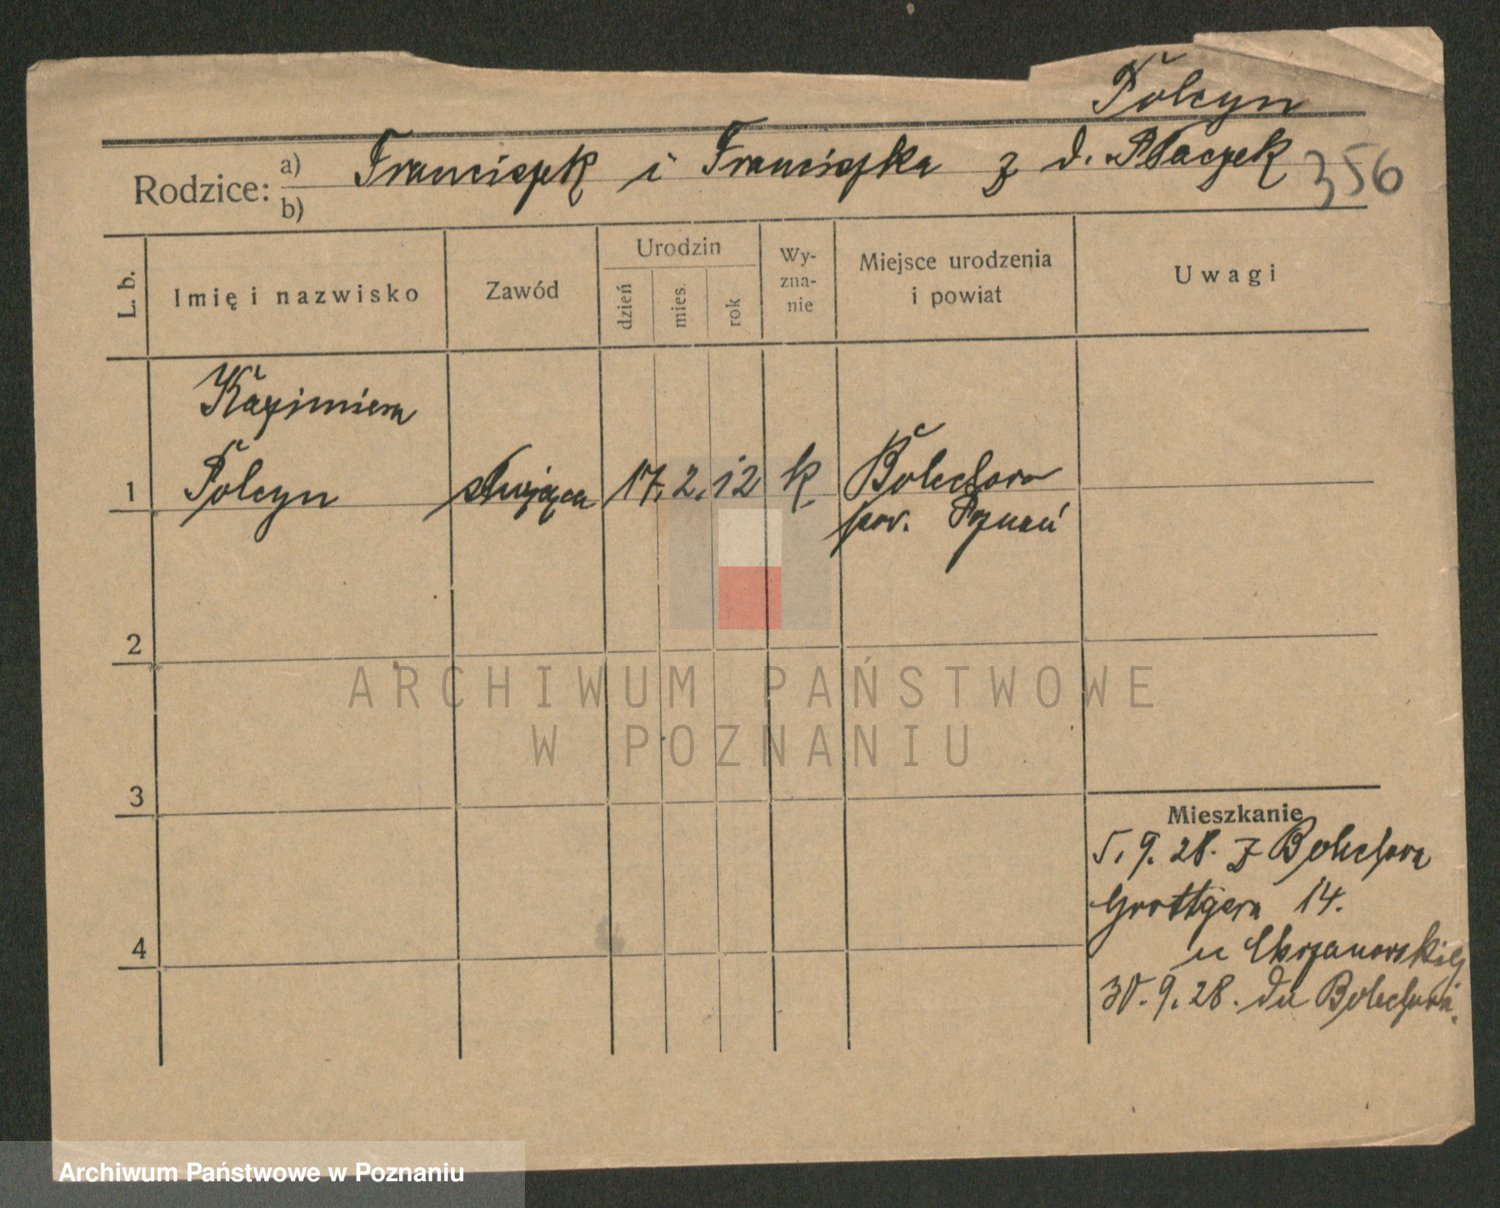 Polcyn
Rodzice: a) b) Franciszek i Franciszka z d. Płaczek 356
L. b. Imię i nazwisko Zawód Urodzin dzień mies. rok Wy-zna-nie Miejsce urodzenia i powiat Uwagi
Kazimiera
1 Polcyn służąca 17. 2. 12 k Bolechowo
pow. Poznań
2
ARCHIWUM PAŃSTWOWE
W POZNANIU
3
Mieszkanie
5. 9. 28. z Bolechowa
Grottgera 14.
4 u Chrzanowskiej
30. 9. 28. do Bolechowa.
Archiwum Państwowe w Poznaniu